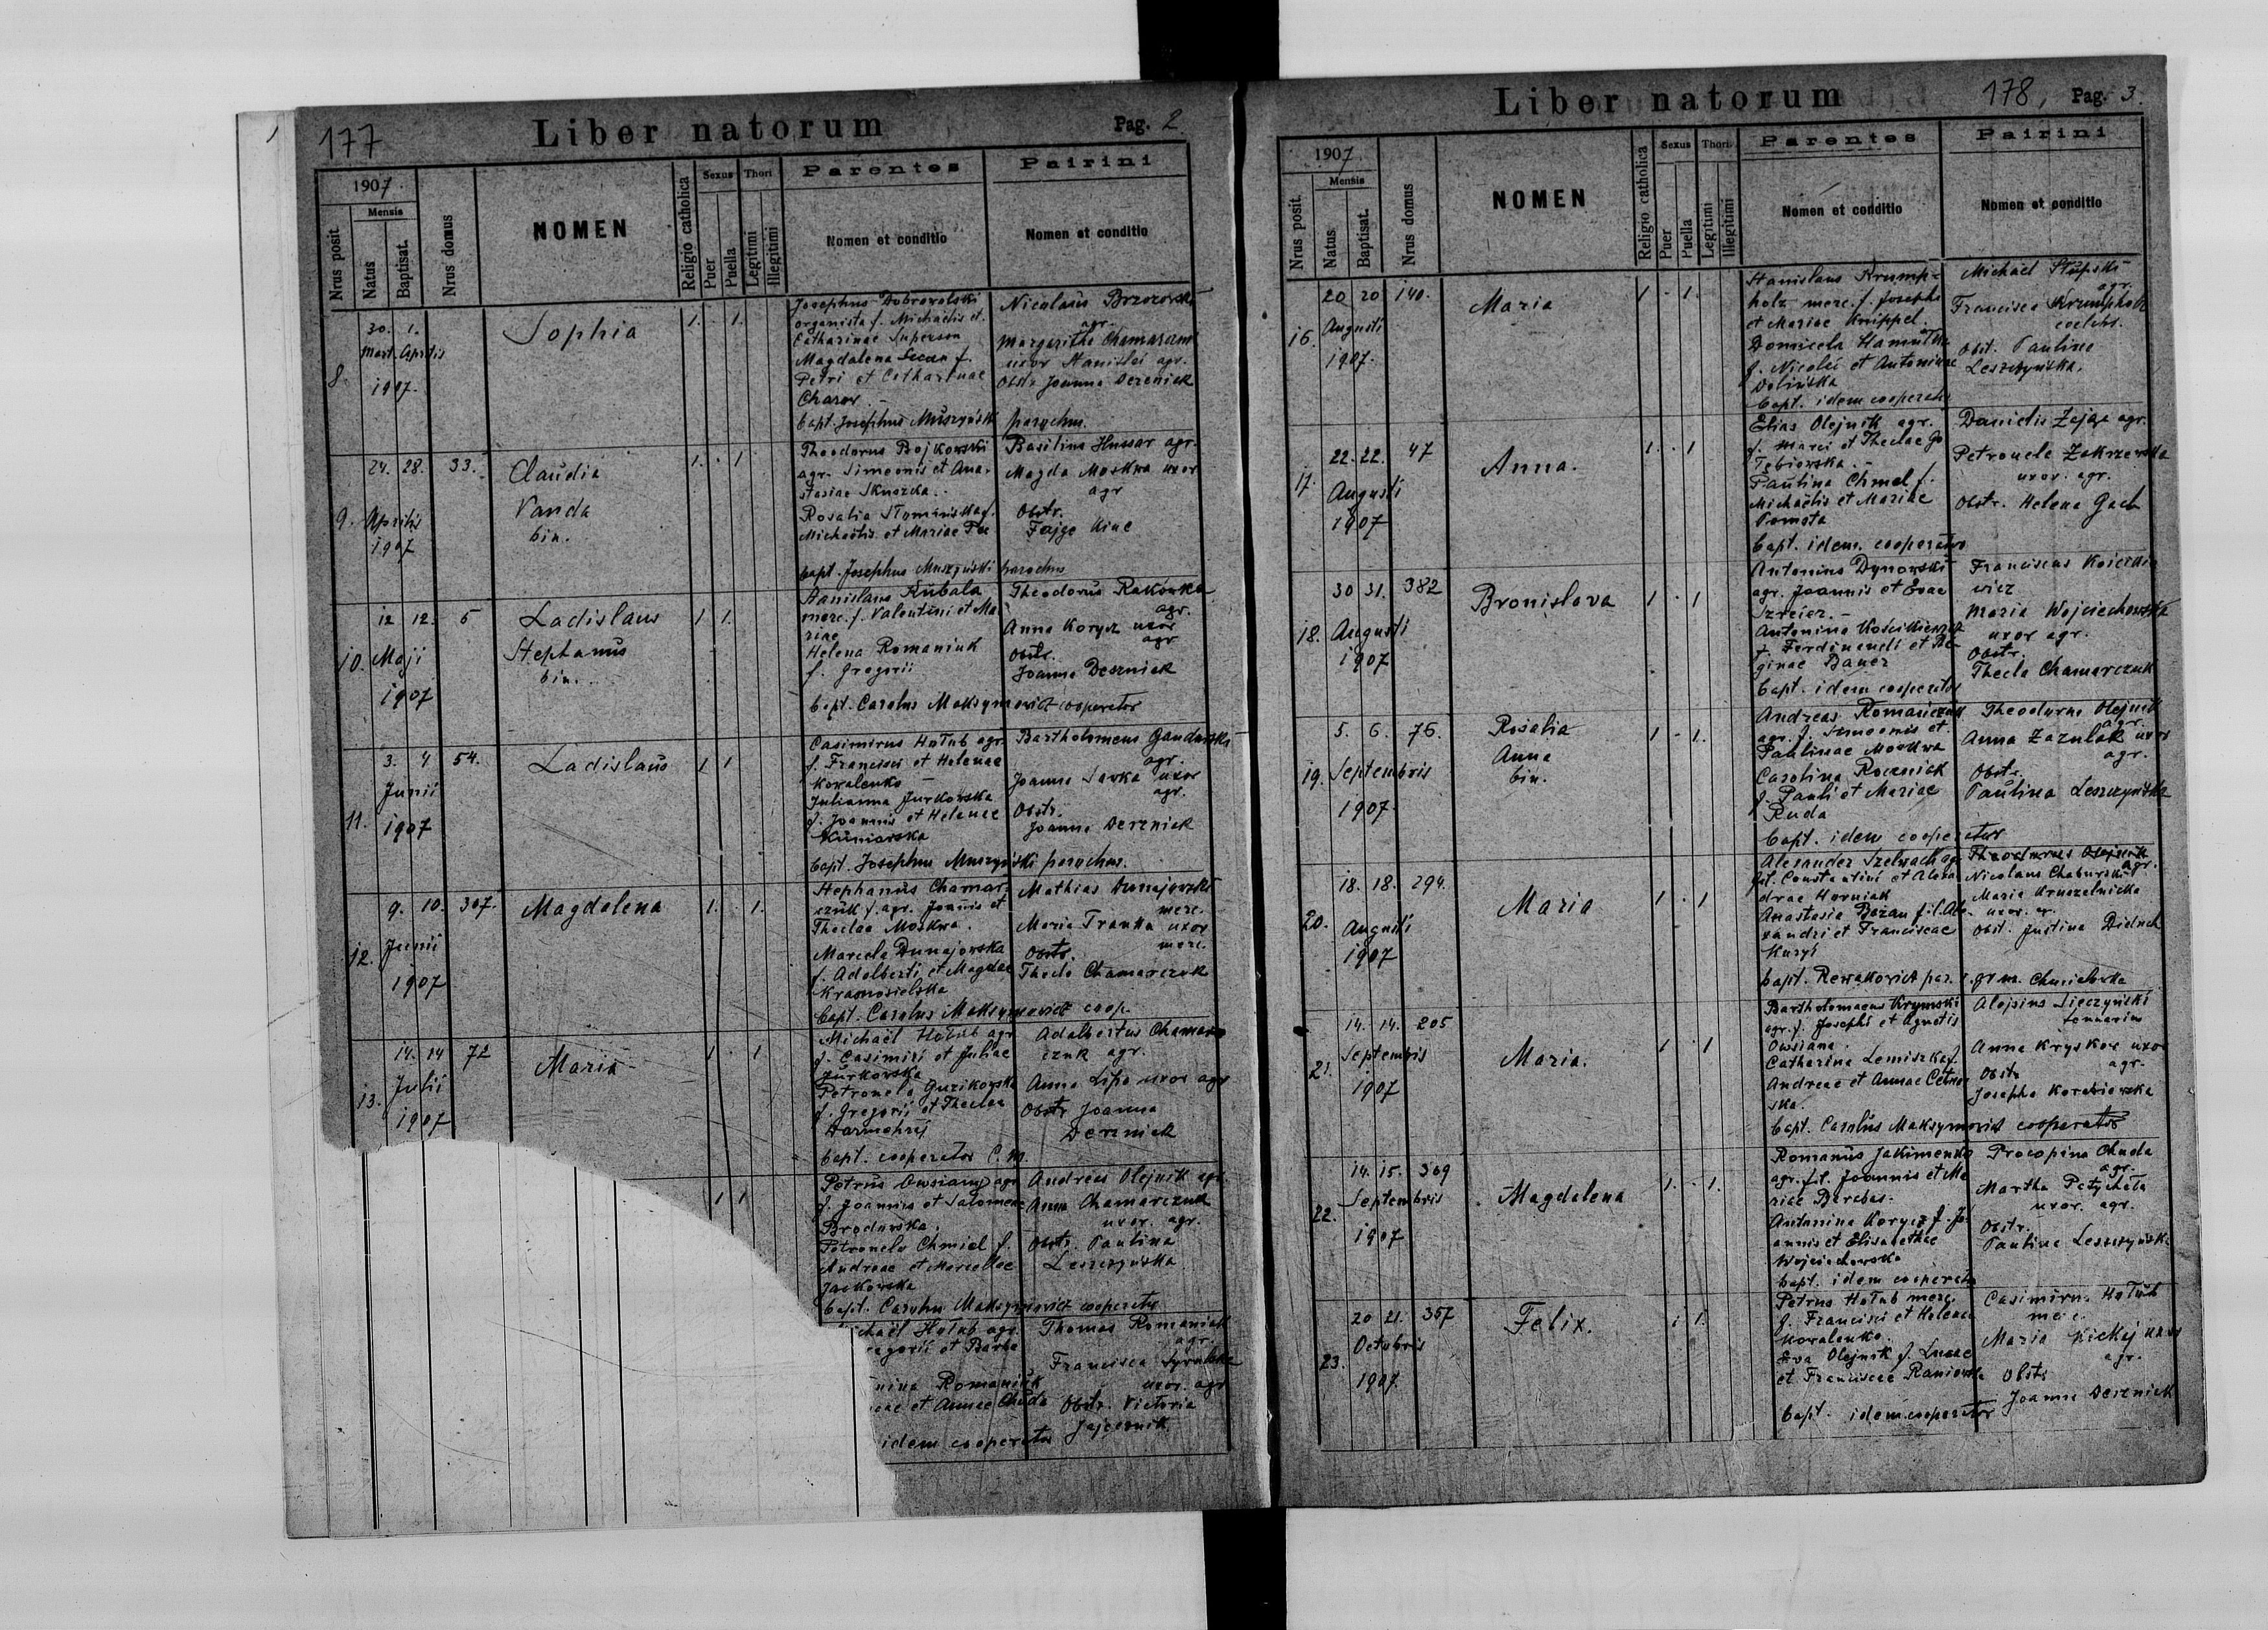 177
Liber natorum
Pag. 2.
1907.
Nrus posit.
Mensis
Natus
Baptisat.
Nrus domus
NOMEN
Religio catholica
Sexus
Puer
Puella
Thori
Legitimi
Illegitimi
Parentes
Nomen et conditio
Patrini
Nomen et conditio
8.
30. 1.
Mart. Aprilis
1907.
Sophia
1. 1.
Josephus Dobrovolski
organista f. Michaelis et
Catharinae Superson
Magdalena f.
Petri et Catharinae
bapt. Josephus Muszyński parochus.
Nicolaus Brzozowski
agr.
Margaritha
uxor Stanislai agr.
Obstr. Joanna Dereniak
9.
24. 28. 33.
Aprilis
1907
Claudia
Vanda
bin.
1. 1
Theodorus Bojkowski
agr. Simeonis et Ana-
stasiae
Rosalia f.
Michaëlis et Mariae
bapt. Josephus Muszyński parochus
Basilius Hussar agr.
Magda Moskwa uxor
agr
Obstr.
Fajge
10.
12 12. 5
Maji
1907
Ladislaus
Stephanus
bin.
1 1.
Stanislaus Kubala
merc. f. Valentini et Ma-
riae
Helena Romaniuk
f. Gregorii
bapt. Carolus Maksymovict cooperator
Theodorus Rakówka
agr.
Anna Korycz uxor
agr
Obstr.
Joanna Derzniak
11.
3. 4 54.
Junii
1907
Ladislaus
1 1
Casimirus Hołub agr
f. Francisci et Helenae
Kowalenko
Julianna Jurkowska
f. Joannis et Helenae
bapt. Josephus Muszyński parochus.
Bartholomeus
agr.
Joanna Savka uxor
agr.
Obstr.
Joanna Derzniak
12.
9. 10. 307.
Junii
1907
Magdalena
1. 1.
Stephanus Chamar-
czuk f. agr. Joannis et
Theclae Moskwa.
Marcela Dunajowska
f. Adalberti et Magdae
Krasnosielska
bapt. Carolus Maksymovict coop.
Mathias Dunajowski
merc.
Maria uxor
merc.
Obstr.
Thecla Chamarczuk
13.
14. 14 72
Julii
1907
Maria
1 1
Michaël Hołub agr
f. Casimiri et Juliae
Jurkowska
Petronela Guzikowska
f. Gregorii et Theclae
bapt. cooperator C. M.
Adalbertus Chamar-
czuk agr.
Anna Lipa uxor agr
Obstr Joanna
Derzniak
1 1
Petrus Owsiany agr
f. Joannis et Salomeae
Brodowska.
Petronela Chmiel f.
Andreae et Marcellae
Jackowska
bapt. Carolus Maksymovict cooperator
Andreas Olejnik agr.
Anna Chamarczuk
uxor. agr.
Obstr. Paulina
Leszczyńska
chaël Hołub agr.
egorii et Barba
nina Romaniuk
et Annae Chuda
idem cooperator
Thomas Romaniuk
agr.
Francisca
uxor. agr
Obstr. Victoria
Jajcernik
Liber natorum
178,
Pag. 3.
1907
Nrus posit.
Mensis
Natus
Baptisat.
Nrus domus
NOMEN
Religio catholica
Sexus
Puer
Puella
Thori
Legitimi
Illegitimi
Parentes
Nomen et conditio
Patrini
Nomen et conditio
16.
20 20 140.
Augusti
1907.
Maria
1 1.
Stanislaus Krump-
holz merc. f. Josephi
et Mariae Knippel.
Domicela
f. Nicolai et Antoninae
Dolińska
bapt. idem cooperator
Michaël Słupski
agr.
Francisca Krumpholz
coelebs.
Obst. Paulina
Leszczyńska.
17.
22. 22. 47
Augusti
1907
Anna.
1. 1
Elias Olejnik agr.
f. Marci et Theclae Go
łębiowska. -
Paulina Chmel f.
Michaëlis et Mariae
Pomsta
bapt. idem. cooperator
Danielis Zając agr.
Petronela Zakrzewska
uxor. agr.
Obstr. Helena Gach
18.
30 31. 382
Augusti
1907
Bronislava
1 1
Antonius Dynowski
agr. Joannis et Evae
Antonina Kościkiewicz
f. Ferdinandi et Re-
ginae Bauer
bapt. idem cooperator
Franciscus
wicz
Maria Wojciechowska
uxor agr.
Obstr.
Thecla Chamarczuk
19.
5. 6. 76.
Septembris
1907
Rosalia
Anna
bin.
1 - 1.
Andreas Romanczuk
agr. f. Simeonis et
Paulinae Moskwa
Carolina Roczniak
f. Pauli et Mariae
Ruda
bapt. idem cooperator
Theodorus Olejnik
agr.
Anna Zazulak uxor
agr.
Obstr.
Paulina Leszczyńska
20.
18. 18. 294.
Augusti
1907
Maria
1 - 1
Alexander Szelwach agr
fil. Constantini et Alexan-
drae Horniak
Anastasia Bożan fil. Ale-
xandri et Franciscae
Kuryś
bapt. Rewakovict par. r. gr. in. Chmielowka
Theodorus Olejnik
agr.
Nicolaus Chaburski
Maria Kruszelnicka
uxor. agr.
Obst. Justina Diduch
21.
14. 14. 205
Septembris
1907
Maria.
1 1
Bartholomaeus Krymski
agr. f. Josephi et Agnetis
Owsiana
Catharina Lemiszka f.
Andreae et Annae Cetnar-
ska.
bapt. Carolus Maksymovict cooperator
Alojsius Sieczyński
Anna uxor
agr.
Obstr
Josepha Korabiowska
22.
14. 15. 309
Septembris
1907
Magdalena
1. 1.
Romanus Jakimenko
agr. fil. Joannis et Ma
riae Barabas.
Antonina Korycz f. Jo-
annis et Elisabethae
Wojciechowska
bapt. idem cooperator
Procopius Chuda
agr.
Martha
uxor. agr.
Obstr.
Paulina Leszczyńska
23.
20 21. 357
Octobris
1907.
Felix.
1 1.
Petrus Hołub merc.
f. Francisci et Helenae
Kowalenko.
Eva Olejnik f. Lucae
et Franciscae Raniowska
bapt. idem cooperator
Casimirus Hołub
merc.
Maria Kickij uxor
agr.
Obstr
Joanna Derzniak